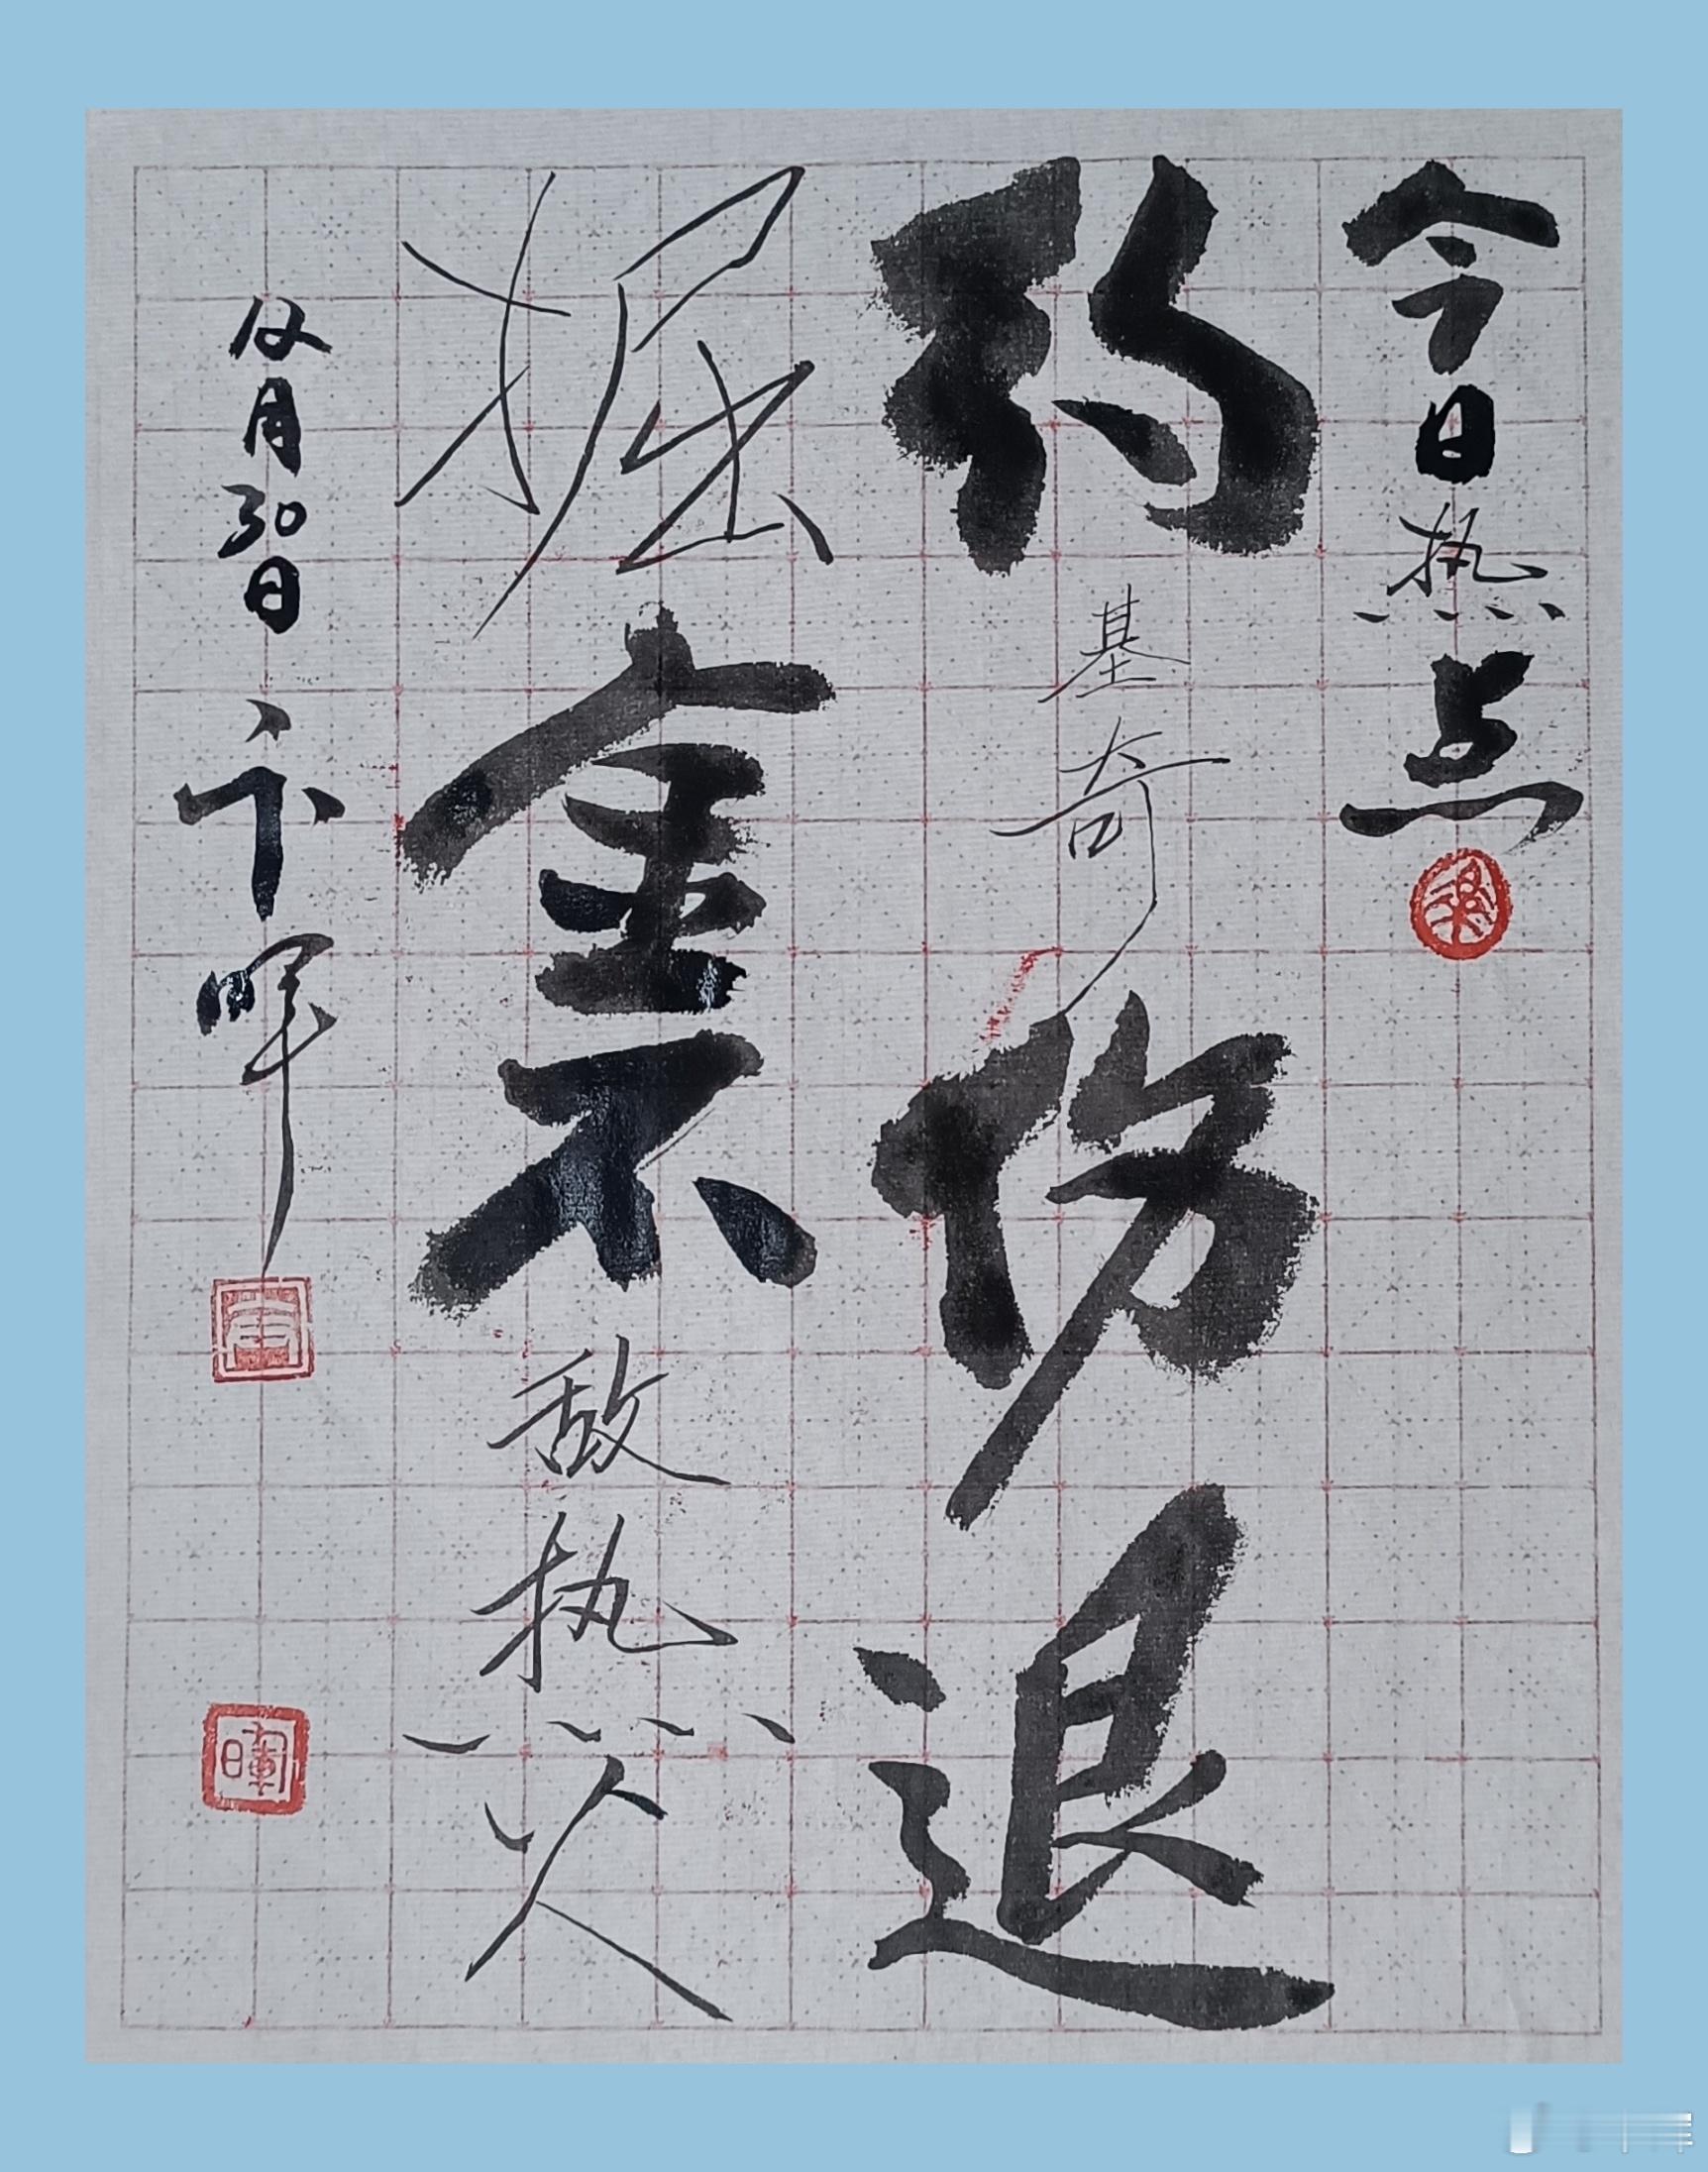 今日热点
约基奇伤退
掘金不敌热火
12月30日 卞晖